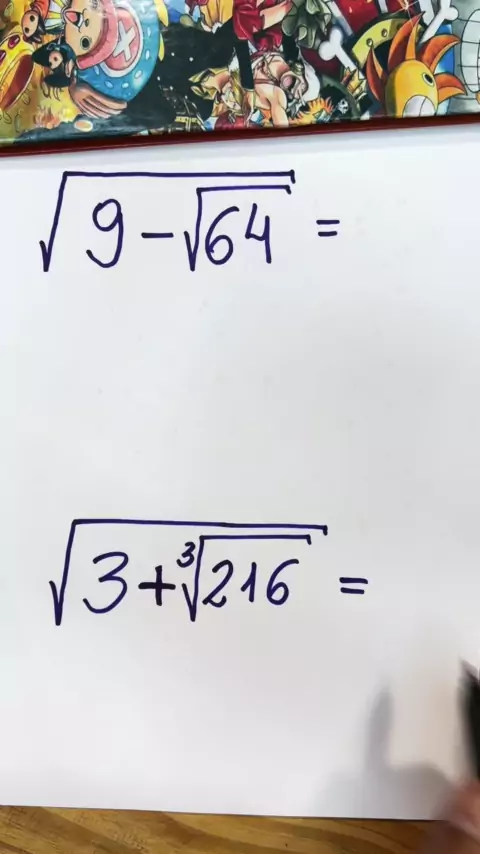 √(9-√64) =
√(3+∛216) =